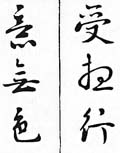 受想行
意無色